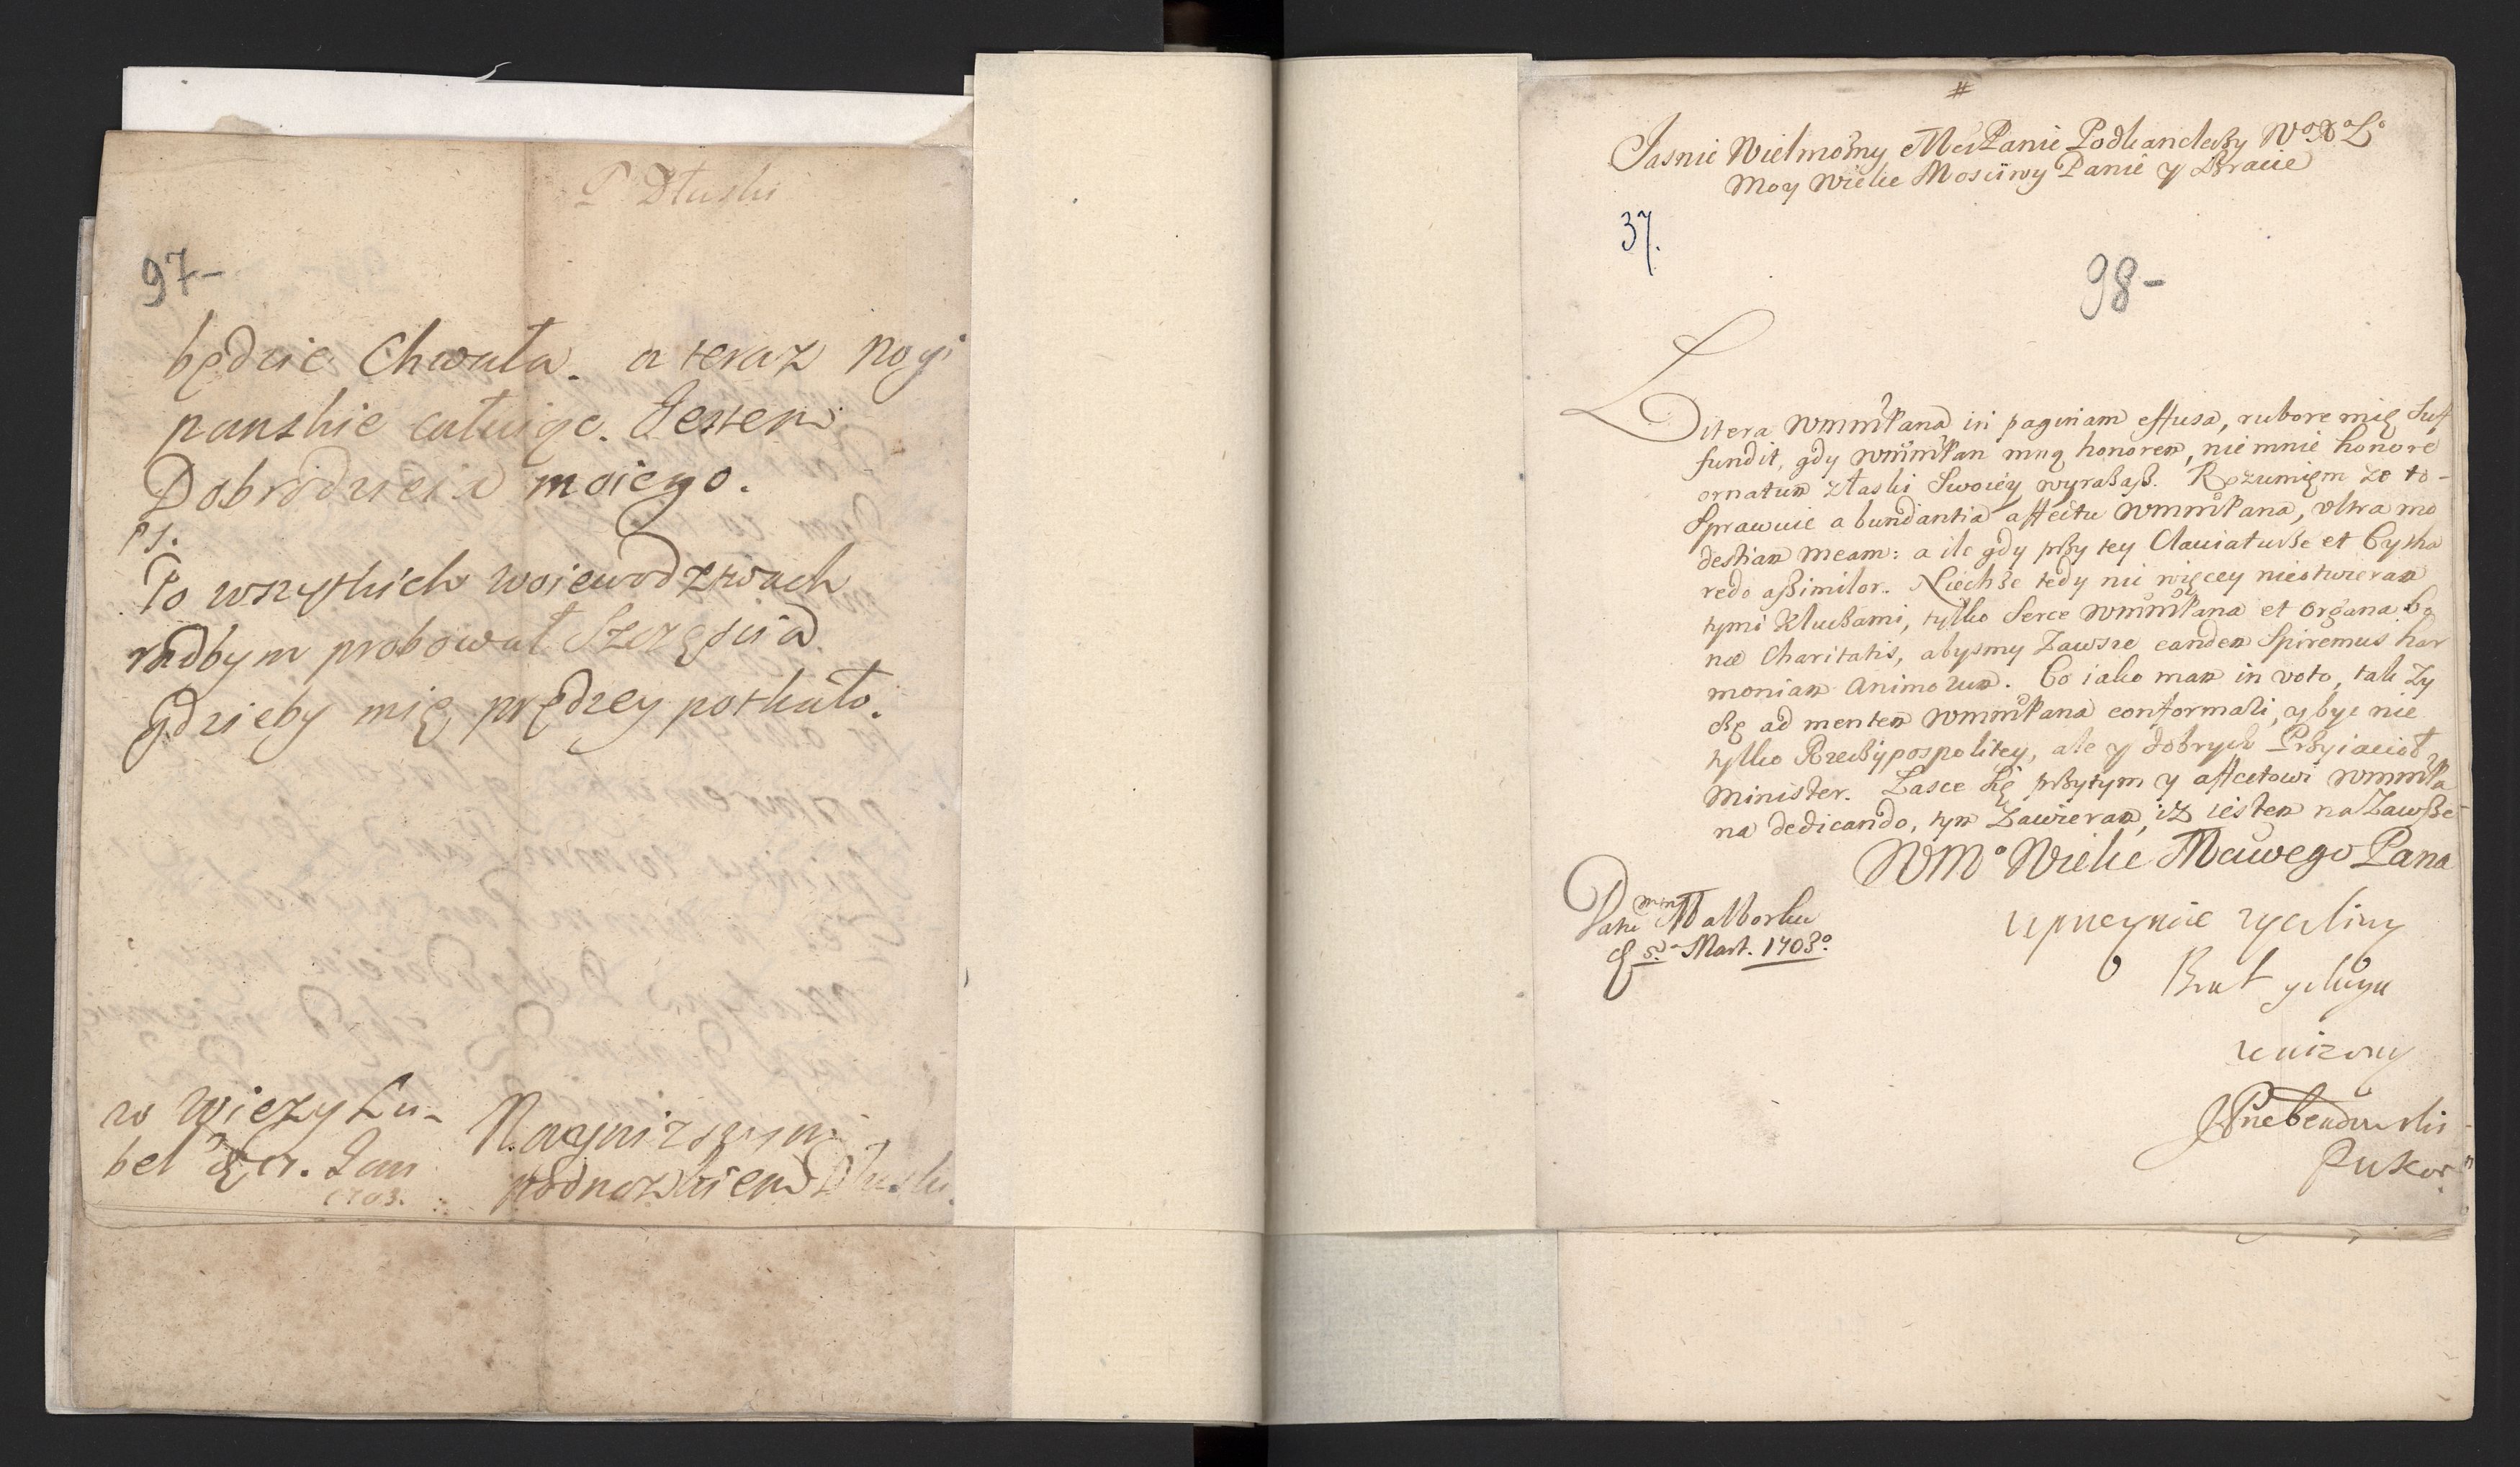 P Dłuski
97-
będzie Chwała. a teraz nogi
panskie całuiąc. Jestem
Dobrodzieia moiego.
PS.
Po wszystkich woiewodztwach
radbym probował Szczęscia
gdzieby mię prędzey potkało.
w Wiezy Lu-
bel 17. Jan
1703.
Nayniższym
podnozkiem Dłuski
#
Jasnie Wielmożny Mci Panie Podkanclerzy W° X° L°
Moy Wielce Mosciwy Panie y Bracie
37.
98-
Litera WMMPana in paginam effusa, rubore mię suf
fundit, gdy WMMPan mną honorem, nie mnie honore
ornatum z łaski Swoiey wyrażasz. Rozumięm że to-
Sprawuie abundantia affectu WMMPana, ultra mo
destiam meam: a ile gdy przy tey Clauiaturze et Cytha
redo assimilor. Niechże tedy nic więcey nie otwieram
tymi Kluczami, tylko Serce WMMPana et Organa bo
næ Charitatis, abysmy Zawsze eandem Spiremus har
moniam Animorum. Co iako mam in voto, tak Zy
czę ad mentem WMMPana conformari, y byc nie
tylko Rzeczypospolitey, ale y dobrych Przyiacioł
Minister. Łasce Się przytym y affectowi WMMPa
na dedicando, tym Zawieram, iż iestem na Zawsze
WM° Wielce Mciwego Pana
Datt w Malborku
d 5. Mart. 1703°
uprzeymie zyczliwy
Brat y sługa
uniżony
JPrzebendowski